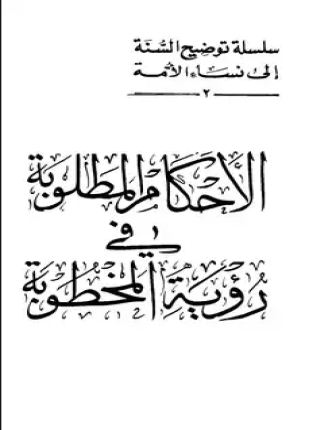 سلسلة توضيح السُّنَّة
إلى نساء الأمة
— ٢ —
الأحكام المطلوبة
في
رؤية المخطوبة